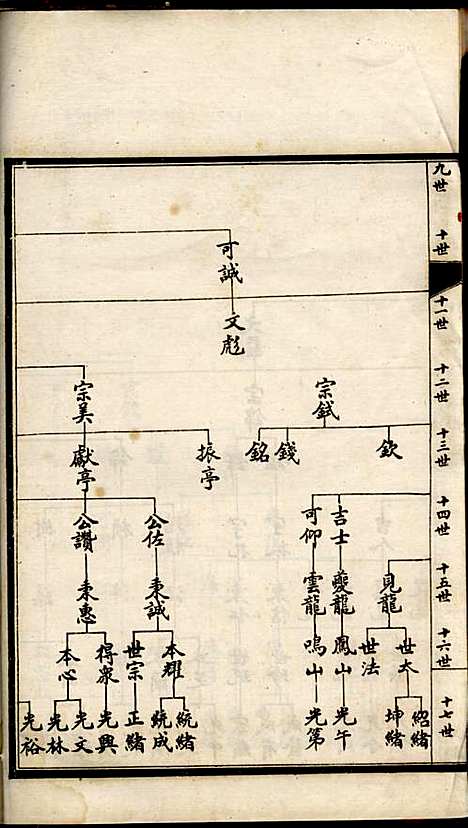 九世
十世
十一世
十二世
十三世
十四世
十五世
十六世
十七世
可誠
文彪
宗鉽
宗美
欽
錢
銘
振亭
獻亭
吉士
可仰
公佐
公讚
見龍
夔龍
雲龍
秉誠
秉惠
世大
世法
鳳山
鳴山
本耀
世宗
得眾
本心
紹緒
坤緒
光午
光第
統緒
統成
正緒
光興
光文
光林
光裕